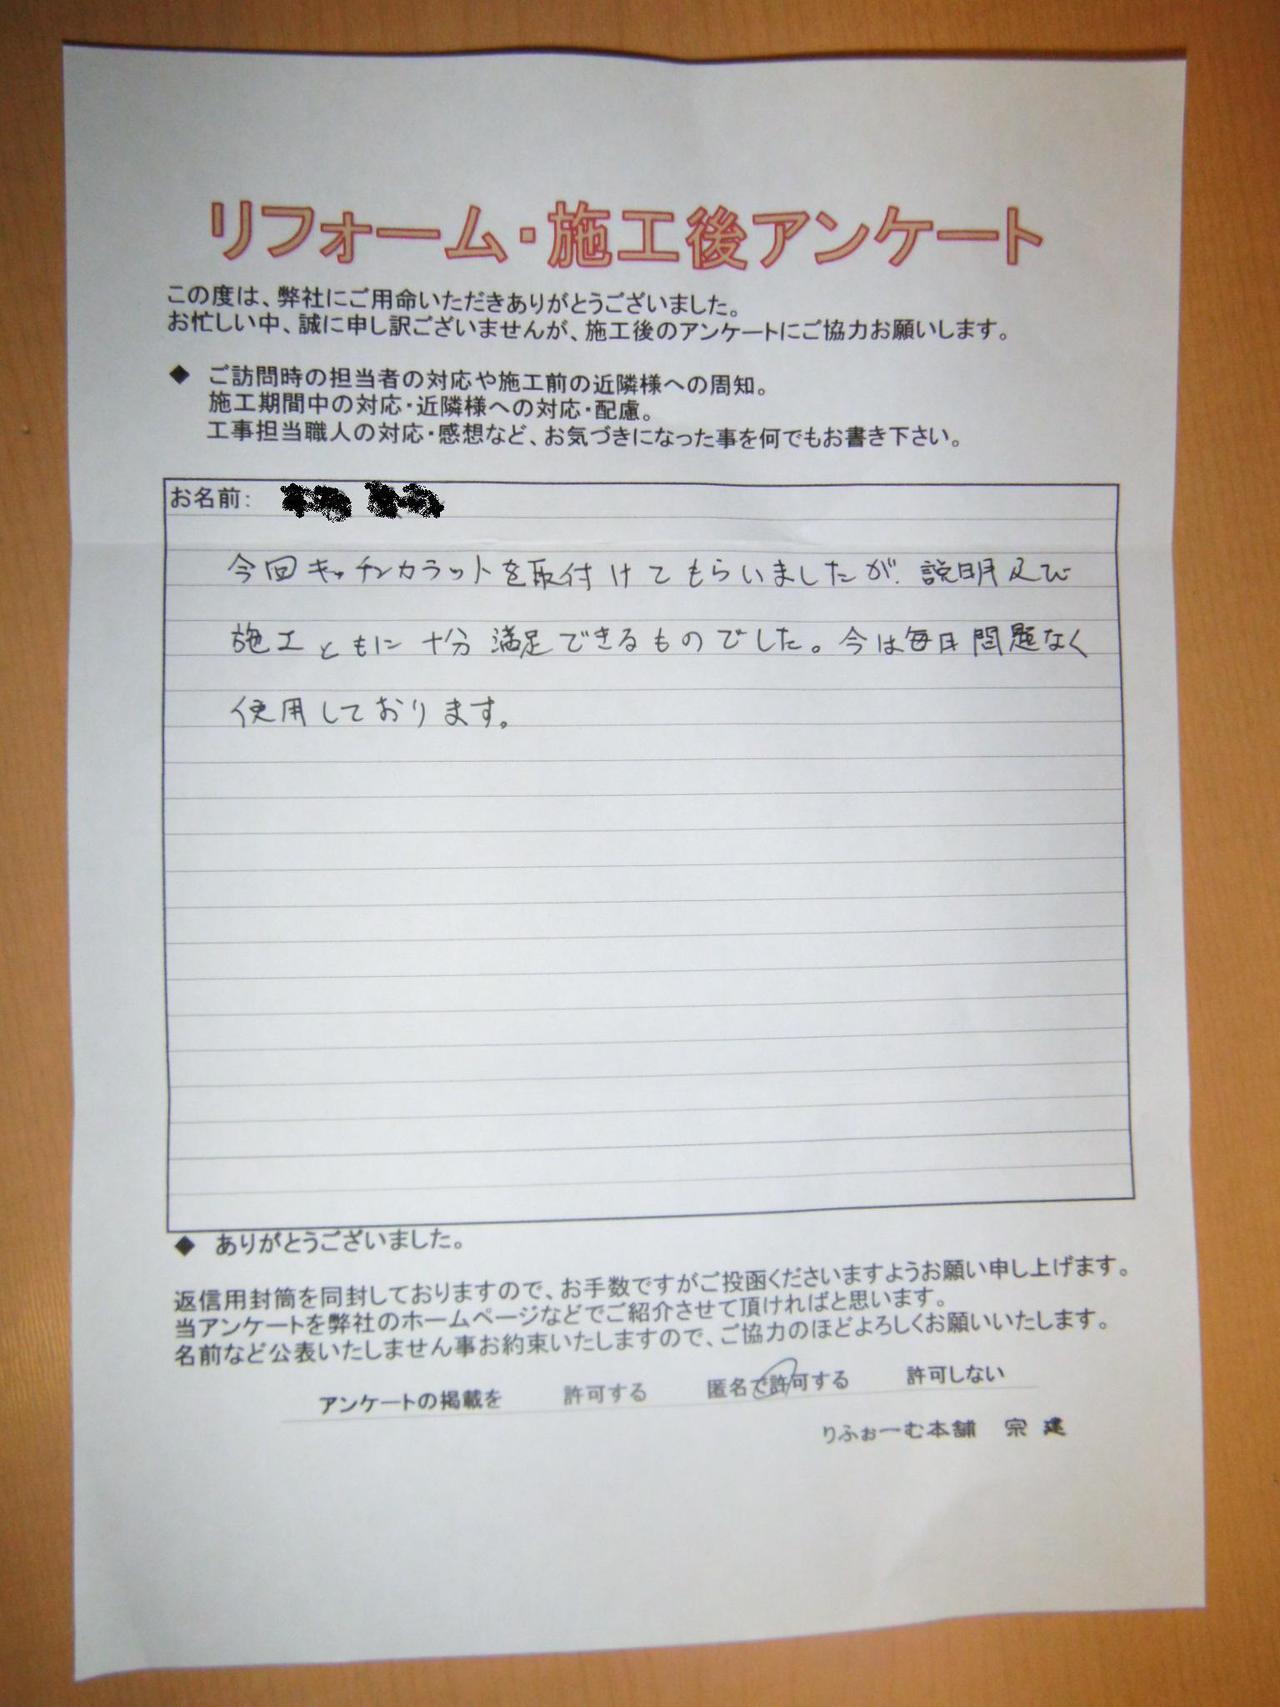 リフォーム・施工後アンケート
この度は、弊社にご用命いただきありがとうございました。
お忙しい中、誠に申し訳ございませんが、施工後のアンケートにご協力お願いします。
◆ ご訪問時の担当者の対応や施工前の近隣様への周知。
施工期間中の対応・近隣様への対応・配慮。
工事担当職人の対応・感想など、お気づきになった事を何でもお書き下さい。
お名前:
今回キッチンカラットを取付けてもらいましたが、説明及び
施工ともに十分満足できるものでした。今は毎日問題なく
使用しております。
◆ ありがとうございました。
返信用封筒を同封しておりますので、お手数ですがご投函くださいますようお願い申し上げます。
当アンケートを弊社のホームページなどでご紹介させて頂ければと思います。
名前など公表いたしません事お約束いたしますので、ご協力のほどよろしくお願いいたします。
アンケートの掲載を 許可する 匿名で許可する 許可しない
りふぉーむ本舗 宗建